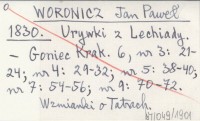 WORONICZ Jan Paweł
1830. Urywki z Lechiady.
— Goniec Krak. 6, nr 3: 21-
24; nr 4: 29-32; nr 5: 38-40;
nr 7: 54-56; nr 9: 70-72.
Wzmianki o Tatrach.